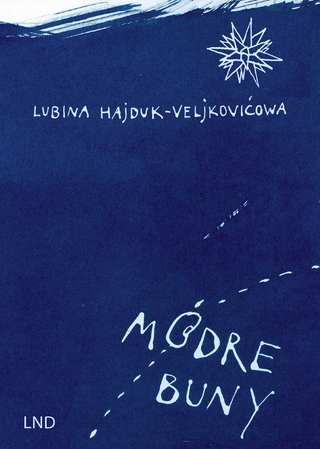 LUBINA HAJDUK-VELJKOVIĆOWA
MÓDRE
BUNY
LND